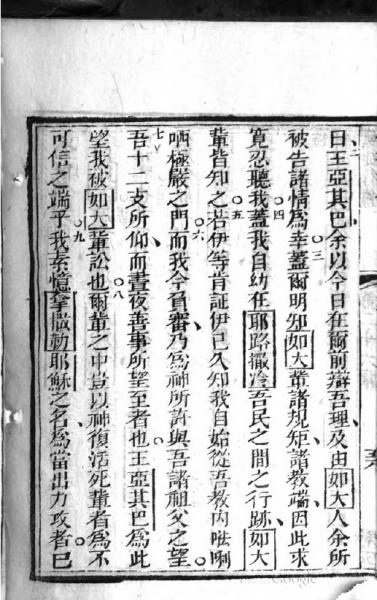 曰王亞其巴余以今日在爾前辯吾理及由如大人余所
被告諸情為幸蓋爾明知如大輩諸規矩諸教端因此求
寬忍聽我蓋我自幼在耶路撒冷吾民之間之行跡如大
輩皆知之若伊等肯証伊已久知我自始從吾教內㕷唎
哂極嚴之門而我今負審乃為神所許與吾諸祖父之望
吾十二支所仰而晝夜善事所望至者也王亞其巴為此
望我被如大輩訟也爾輩之中豈以神復活死輩者為不
可信之端乎我素憶拿撒勒耶穌之名為當出力攻者巳
Google